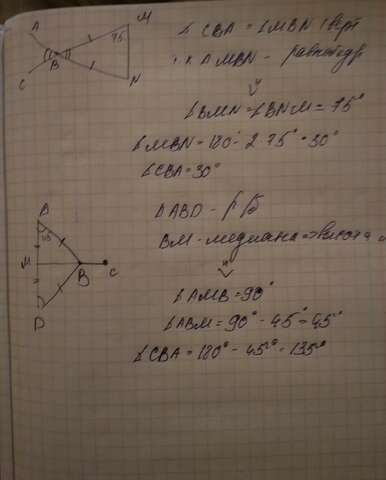 A
M
75
B
C
N
∡CBA = ∡MBN (верт
т.к Δ MBN - равнобедр
∡BMN = ∡BNM = 75°
∡MBN = 180° - 2 · 75° = 30°
∡CBA = 30°
ΔABD - р/б
BM - медиана => высота и
∡AMB = 90°
∡ABM = 90° - 45° = 45°
∡CBA = 180° - 45° = 135°
45
M
B
C
D